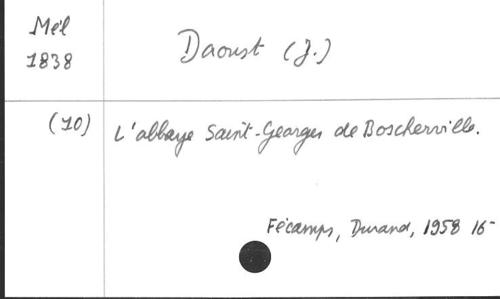 Mél
1838
Daoust (J.)
(10)
L'abbaye Saint-Georges de Boscherville.
Fécamps, Durand, 1958 16-